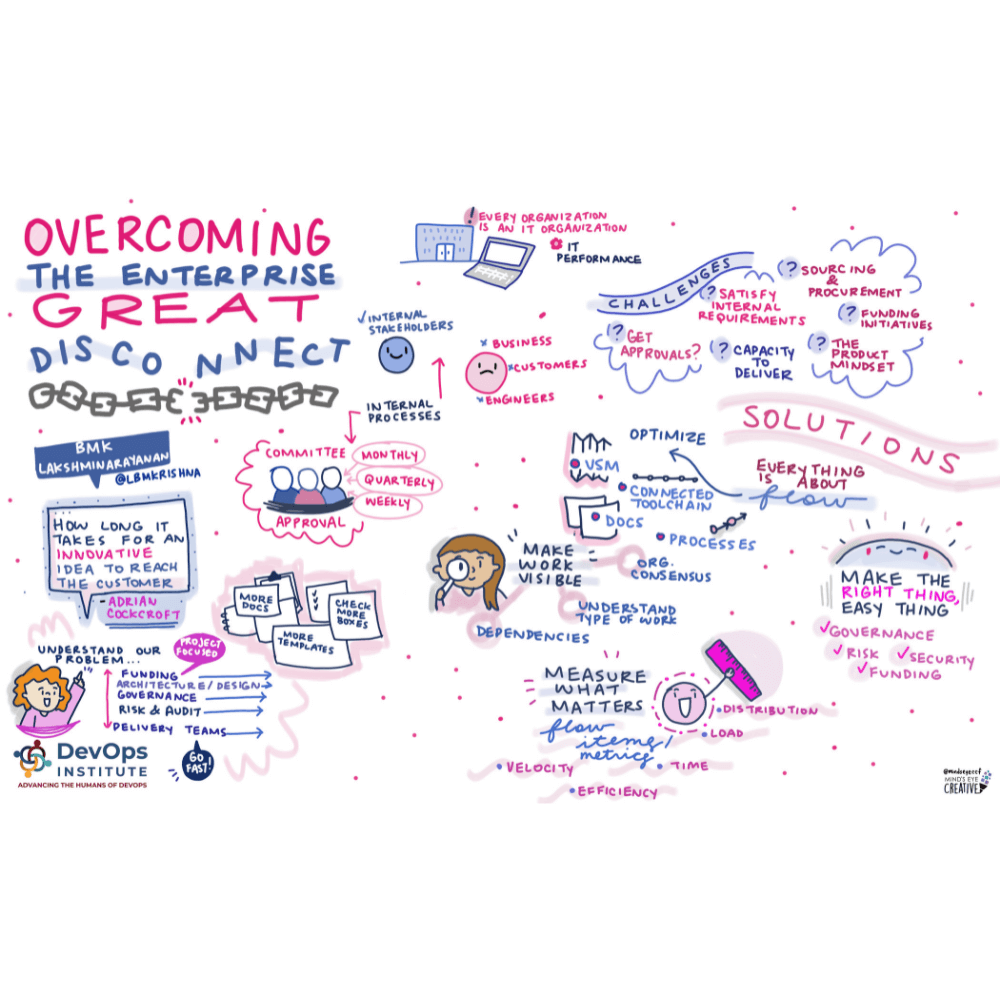 OVERCOMING
THE ENTERPRISE
GREAT
DISCONNECT
BMK
LAKSHMINARAYANAN
@LBMKRISHNA
HOW LONG IT
TAKES FOR AN
INNOVATIVE
IDEA TO REACH
THE CUSTOMER
- ADRIAN
COCKCROFT
UNDERSTAND OUR
PROBLEM...
PROJECT
FOCUSED
FUNDING
ARCHITECTURE/DESIGN
GOVERNANCE
RISK & AUDIT
DELIVERY TEAMS
GO
FAST!
DevOps
INSTITUTE
ADVANCING THE HUMANS OF DEVOPS
! EVERY ORGANIZATION
IS AN IT ORGANIZATION
IT
PERFORMANCE
✓ INTERNAL
STAKEHOLDERS
x BUSINESS
x CUSTOMERS
x ENGINEERS
INTERNAL
PROCESSES
COMMITTEE
APPROVAL
MONTHLY
QUARTERLY
WEEKLY
MORE
DOCS
MORE
TEMPLATES
CHECK
MORE
BOXES
CHALLENGES
? SOURCING
&
PROCUREMENT
? SATISFY
INTERNAL
REQUIREMENTS
? FUNDING
INITIATIVES
? GET
APPROVALS?
? CAPACITY
TO
DELIVER
? THE
PRODUCT
MINDSET
SOLUTIONS
EVERYTHING
IS ABOUT
flow
OPTIMIZE
• VSM
• CONNECTED
TOOLCHAIN
• DOCS
• PROCESSES
MAKE
WORK
VISIBLE
ORG.
CONSENSUS
UNDERSTAND
TYPE OF WORK
DEPENDENCIES
MEASURE
WHAT
MATTERS
flow
items/
metrics
• DISTRIBUTION
• LOAD
• TIME
• VELOCITY
• EFFICIENCY
MAKE THE
RIGHT THING,
EASY THING
✓ GOVERNANCE
✓ RISK
✓ SECURITY
✓ FUNDING
@mindseyeccf
MIND'S EYE
CREATIVE